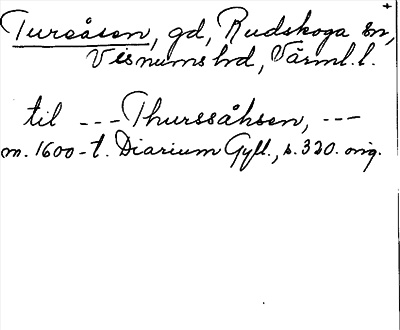 Tursåsen, gd, Rudskoga sn,
Visnums hd, Värml. l.
til --- Thurssåhsen, ---
m. 1600-t. Diarium Gyll., s. 320. orig.